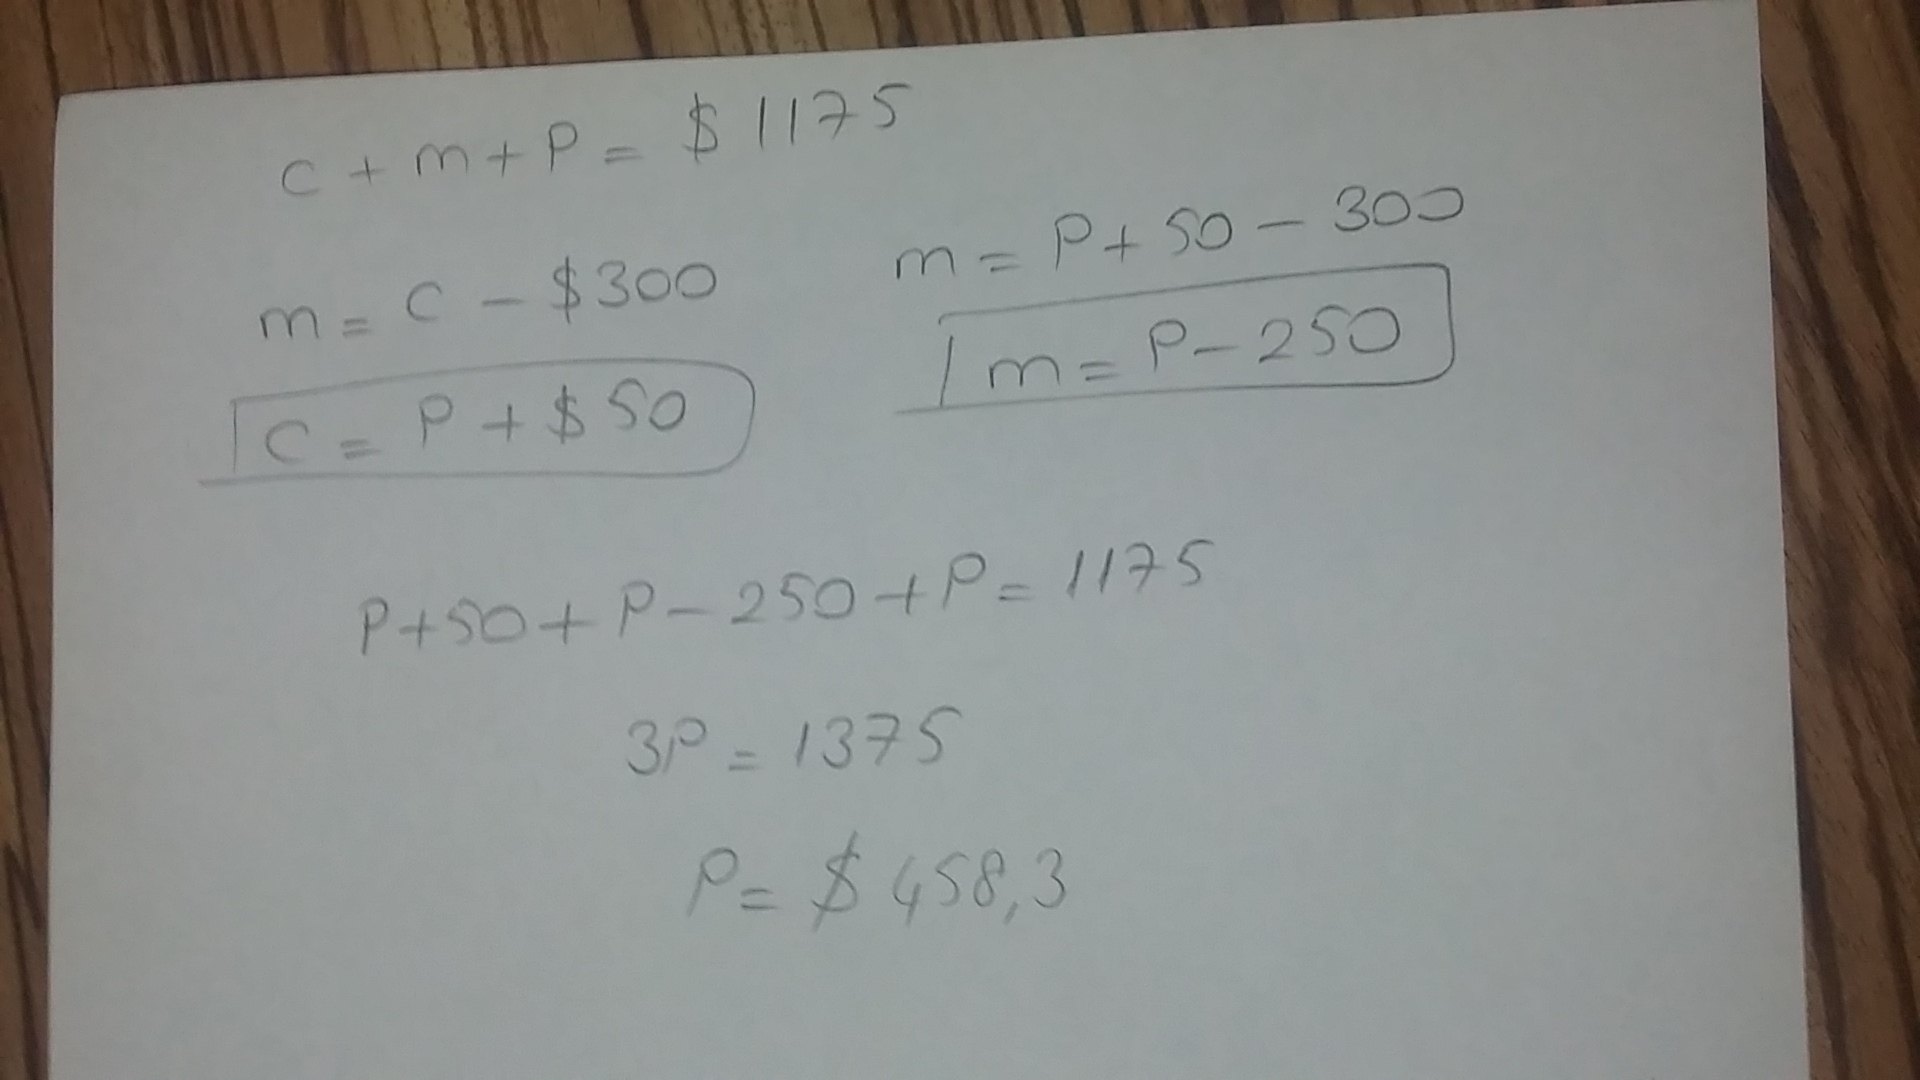 c + m + P = $ 1175
m = C - $300
C = P + $ 50
m = P + 50 - 300
m = P - 250
P + 50 + P - 250 + P = 1175
3P = 1375
P = $ 458,3